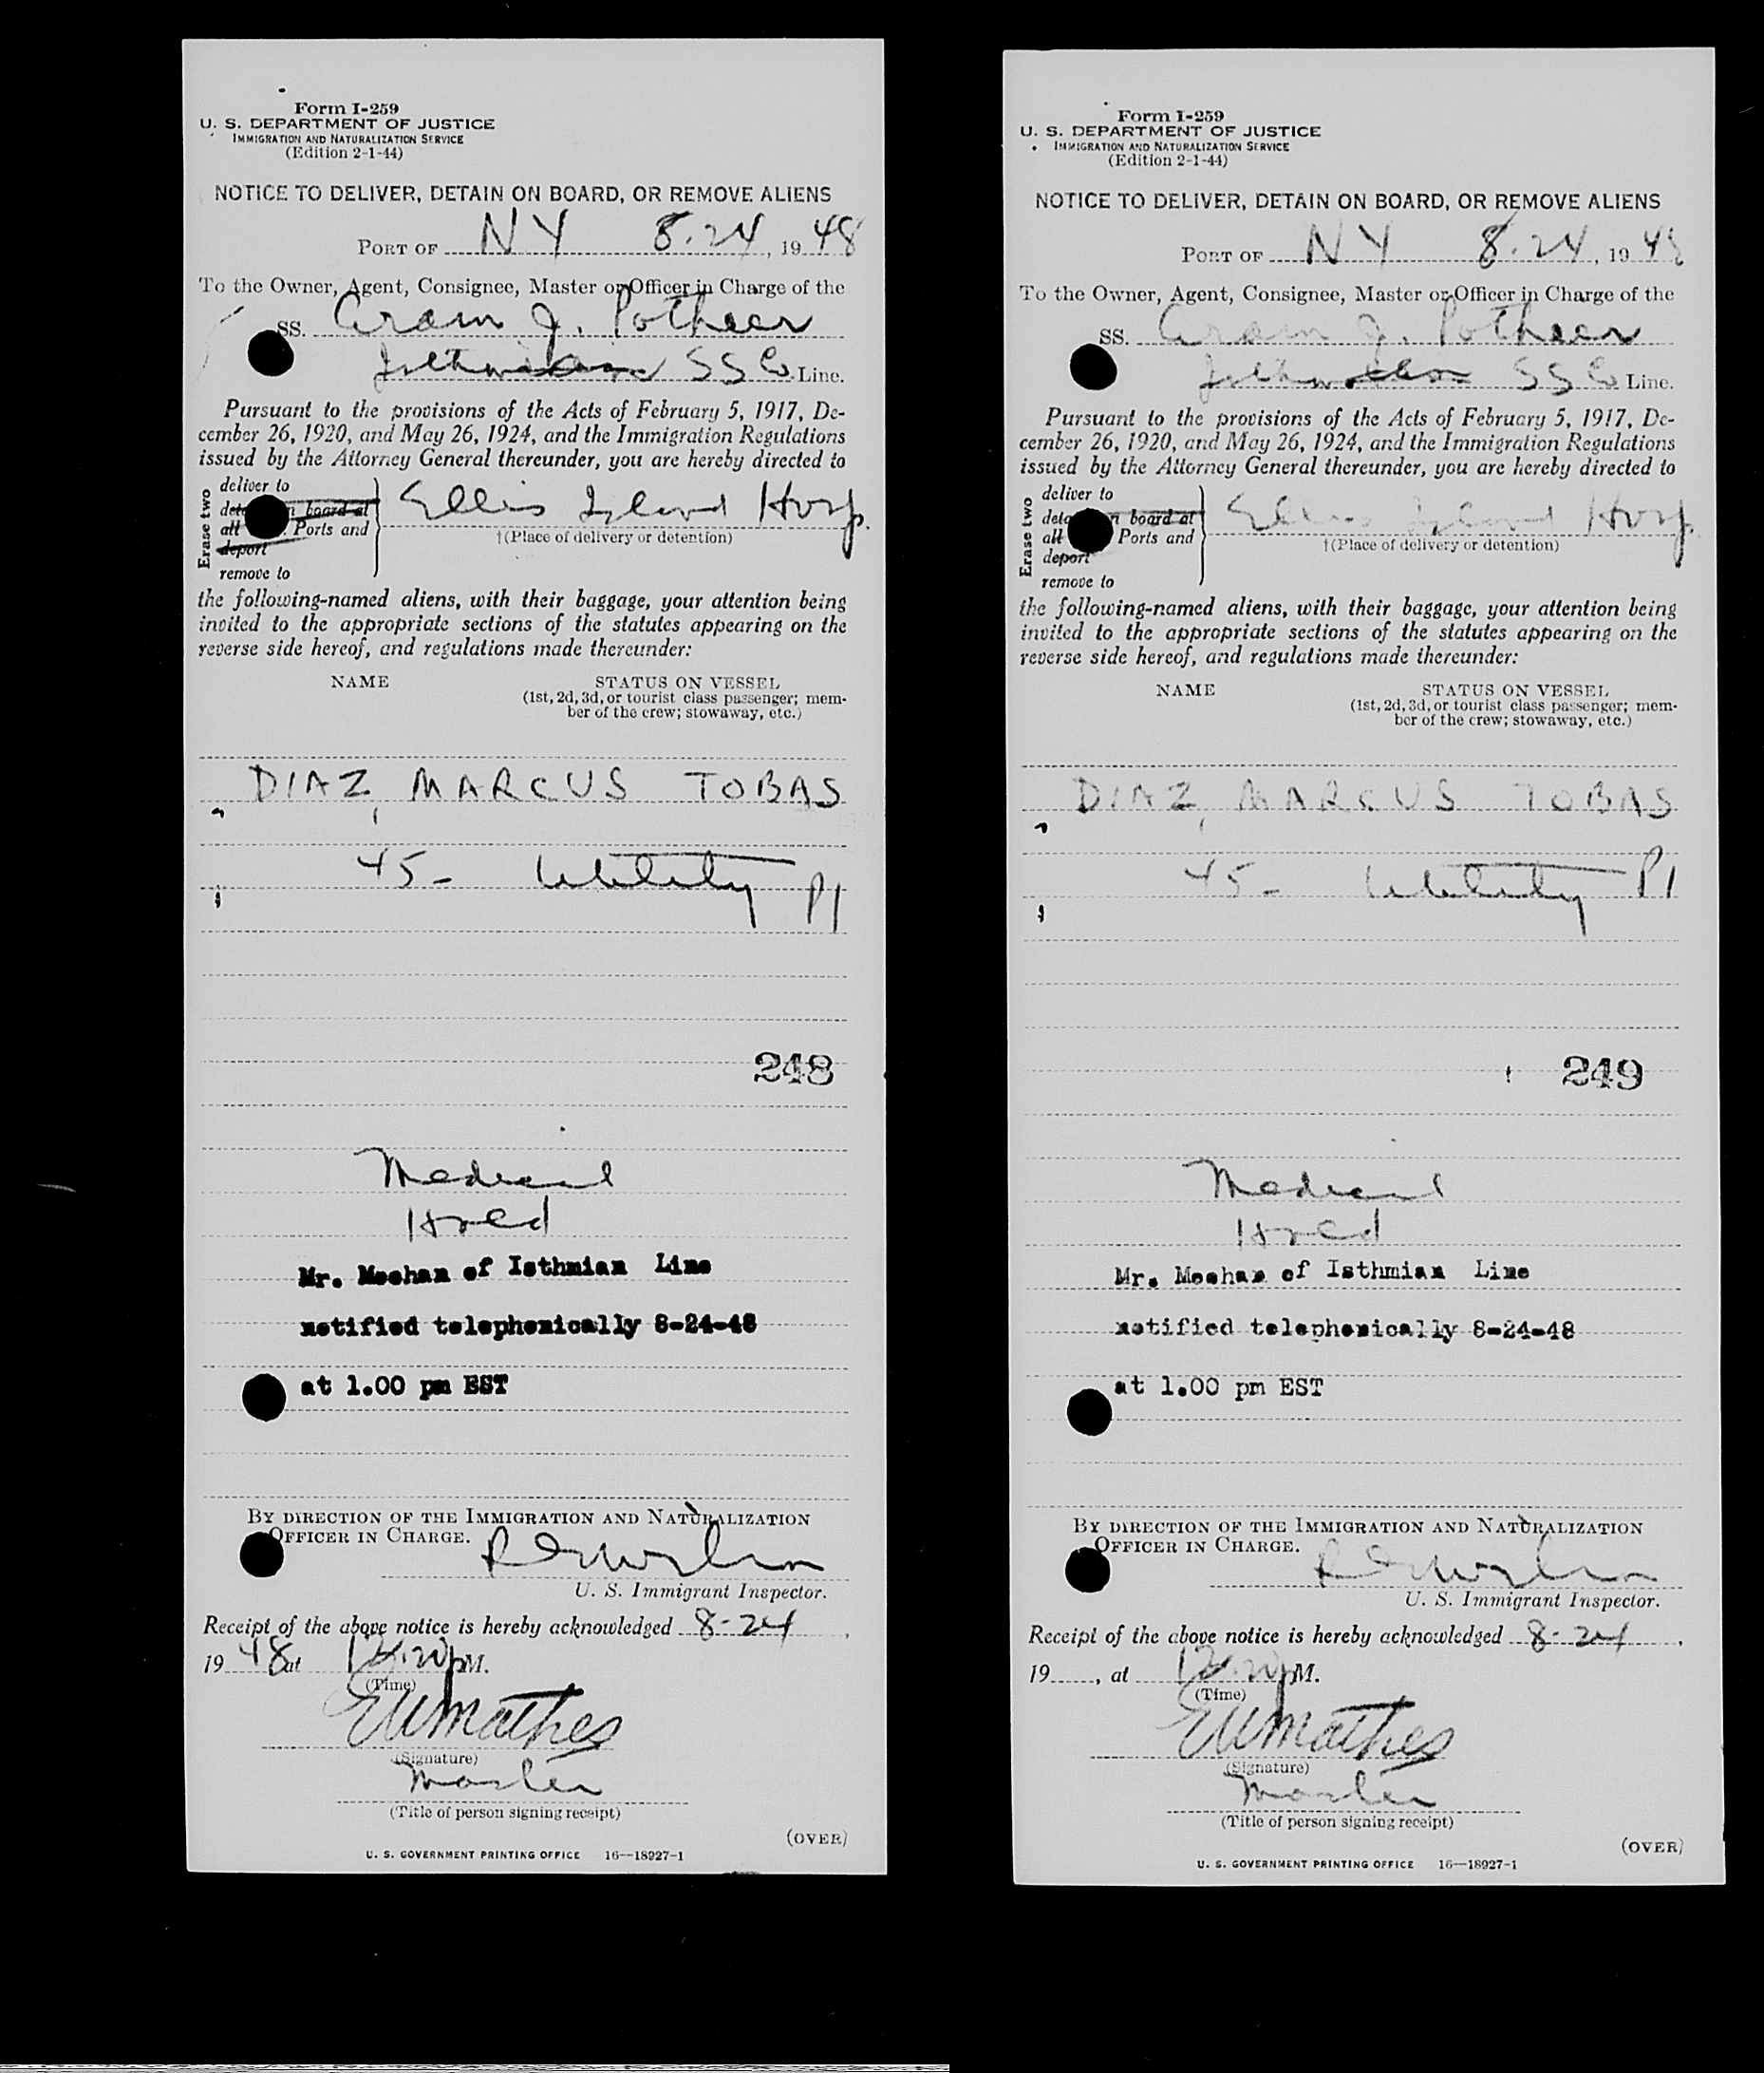 Form I-259
U. S. DEPARTMENT OF JUSTICE
IMMIGRATION AND NATURALIZATION SERVICE
(Edition 2-1-44)
NOTICE TO DELIVER, DETAIN ON BOARD, OR REMOVE ALIENS
PORT OF NY 8.24, 1948
To the Owner, Agent, Consignee, Master or Officer in Charge of the
SS. Aram J. Pothier
Isthmian SS Co Line.
Pursuant to the provisions of the Acts of February 5, 1917, De-
cember 26, 1920, and May 26, 1924, and the Immigration Regulations
issued by the Attorney General thereunder, you are hereby directed to
Erase two
deliver to
board at
all Ports and
deport
remove to
Ellis Island Hosp.
†(Place of delivery or detention)
the following-named aliens, with their baggage, your attention being
invited to the appropriate sections of the statutes appearing on the
reverse side hereof, and regulations made thereunder:
NAME STATUS ON VESSEL
(1st, 2d, 3d, or tourist class passenger; mem-
ber of the crew; stowaway, etc.)
DIAZ, MARCUS TOBAS
45- Utility PI
248
Medical
Hold
Mr. Meehan of Isthmian Line
notified telephonically 8-24-48
at 1.00 pm EST
BY DIRECTION OF THE IMMIGRATION AND NATURALIZATION
OFFICER IN CHARGE.
U. S. Immigrant Inspector.
Receipt of the above notice is hereby acknowledged 8-24,
1948 at 12.20 p M.
(Time)
EW Mathes
(Signature)
Master
(Title of person signing receipt)
(OVER)
U. S. GOVERNMENT PRINTING OFFICE 16—18927-1
Form I-259
U. S. DEPARTMENT OF JUSTICE
IMMIGRATION AND NATURALIZATION SERVICE
(Edition 2-1-44)
NOTICE TO DELIVER, DETAIN ON BOARD, OR REMOVE ALIENS
PORT OF NY 8.24, 1948
To the Owner, Agent, Consignee, Master or Officer in Charge of the
SS. Aram J. Pothier
Isthmian SS Co Line.
Pursuant to the provisions of the Acts of February 5, 1917, De-
cember 26, 1920, and May 26, 1924, and the Immigration Regulations
issued by the Attorney General thereunder, you are hereby directed to
Erase two
deliver to
board at
all Ports and
deport
remove to
Ellis Island Hosp.
†(Place of delivery or detention)
the following-named aliens, with their baggage, your attention being
invited to the appropriate sections of the statutes appearing on the
reverse side hereof, and regulations made thereunder:
NAME STATUS ON VESSEL
(1st, 2d, 3d, or tourist class passenger; mem-
ber of the crew; stowaway, etc.)
DIAZ, MARCUS TOBAS
45- Utility PI
249
Medical
Hold
Mr. Meehan of Isthmian Line
notified telephonically 8-24-48
at 1.00 pm EST
BY DIRECTION OF THE IMMIGRATION AND NATURALIZATION
OFFICER IN CHARGE.
U. S. Immigrant Inspector.
Receipt of the above notice is hereby acknowledged 8-24,
19, at 12.20 p M.
(Time)
EW Mathes
(Signature)
Master
(Title of person signing receipt)
(OVER)
U. S. GOVERNMENT PRINTING OFFICE 16—18927-1